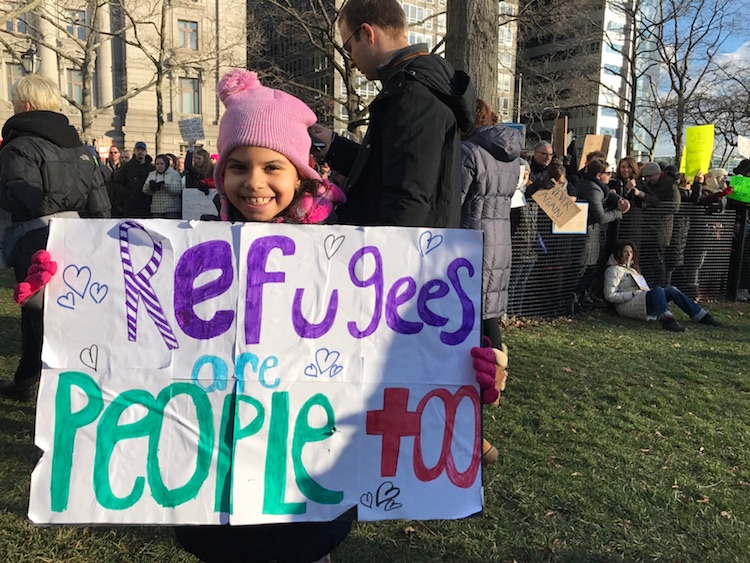 Refugees
are
PEOPLE too
AGAIN